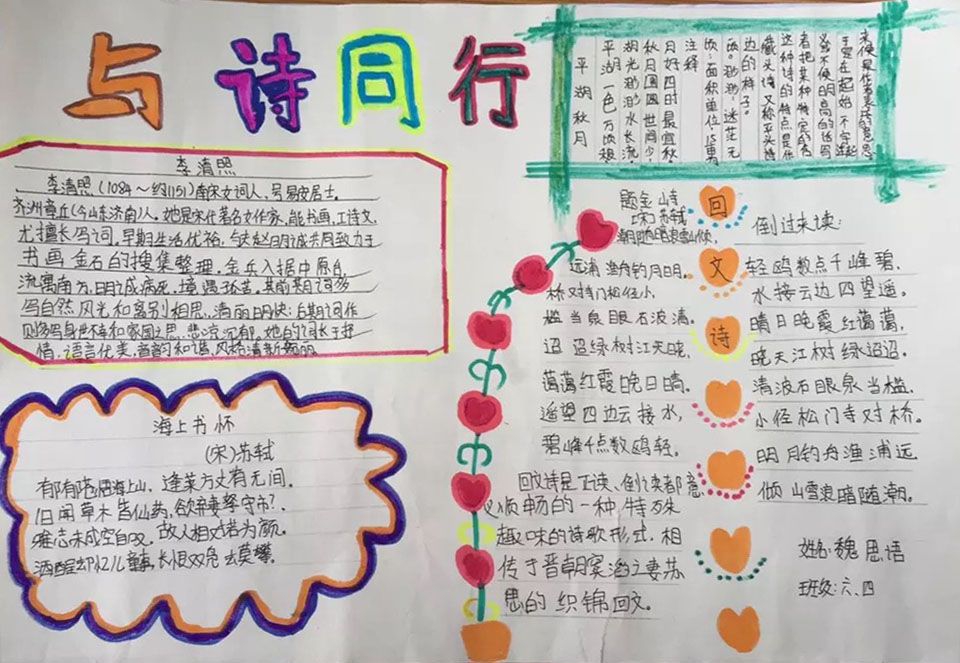 与诗同行
李清照
李清照(1084～约1151)南宋女词人,号易安居士,
齐洲章丘(今山东济南)人。她是宋代著名女作家,能书画,工诗文,
尤擅长写词。早期生活优裕,与夫赵明诚共同致力于
书画金石的搜集整理。金兵入据中原,
流寓南方,明诚病死,境遇孤苦。其前期词多
写自然风光和离别相思,清丽明快;后期词作
则多写身世不幸和家国之思,悲凉沉郁。她的词长于抒
情,语言优美,音韵和谐,风格清新婉丽。
海上书怀
(宋)苏轼
郁郁苍梧海上山,蓬莱方丈有无间。
旧闻草木皆仙药,欲弃妻孥守市
难志未成空自叹,故人相对若为颜。
酒醒却忆儿童事,长恨双凫去莫攀。
平湖秋月
平湖一色万顷
湖光渺渺水长流
秋月圆圆世间少
月好四时最宜秋
注释
顷:面积单位,15
顷。渺渺:迷茫无
边的样子。
藏头诗,又称平头诗
这种诗的特点是
者把某种特定
题金山诗
(宋)苏轼
潮随暗浪雪山倾,
远浦渔舟钓月明。
桥对寺门松径小,
槛当泉眼石波清。
迢迢绿树江天晓,
蔼蔼红霞晚日晴。
遥望四边云接水,
碧峰千点数鸥轻。
回文诗是正读、倒读都意
义顺畅的一种特殊
趣味的诗歌形式。相
传于晋朝窦滔之妻苏
的织锦回文。
回
文
诗
倒过来读:
轻鸥数点千峰碧,
水接云边四望遥。
晴日晚霞红蔼蔼,
晓天江树绿迢迢。
清波石眼泉当槛,
小径松门寺对桥。
明月钓舟渔浦远,
倾山雪浪暗随潮。
姓名:魏思语
班级:六、四